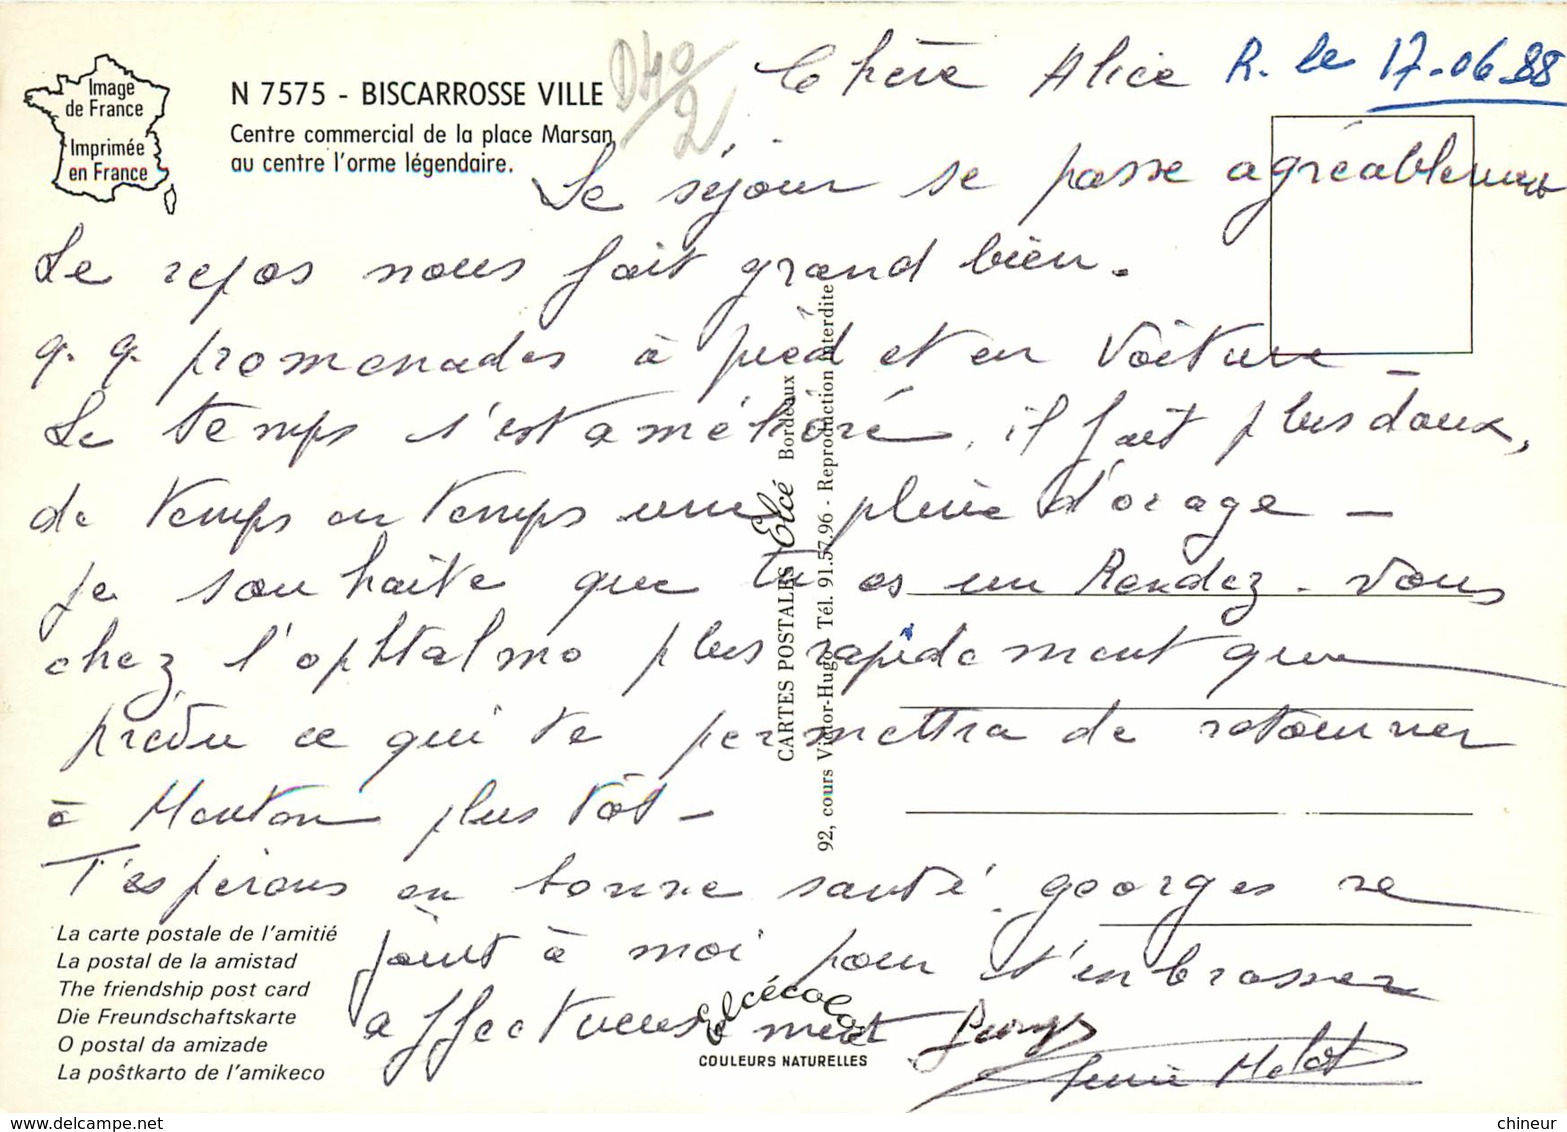 Image
de France
Imprimée
en France
N 7575 - BISCARROSSE VILLE
Centre commercial de la place Marsan
au centre l'orme légendaire.
D40/2
Chère Alice R. le 17-06-88
Le séjour se passe agréablement
Le repos nous fait grand bien.
q. q. promenades à pied et en voiture _
Le temps s'est amélioré, il fait plus doux,
de temps en temps une pluie d'orage _
je souhaite que tu es un Rendez-vous
chez l'ophtalmo plus rapidement que
prévu ce qui te permettra de retourner
à Menton plus tôt _
T'espérons en bonne santé. georges se
joint à moi pour t'embrasser
affectueusement Georges
Melot
La carte postale de l'amitié
La postal de la amistad
The friendship post card
Die Freundschaftskarte
O postal da amizade
La poŝtkarto de l'amikeco
CARTES POSTALES Elcé Bordeaux
92, cours Victor-Hugo - Tél. 91.57.96 - Reproduction interdite
Elcécolor
COULEURS NATURELLES
chineur
www.delcampe.net